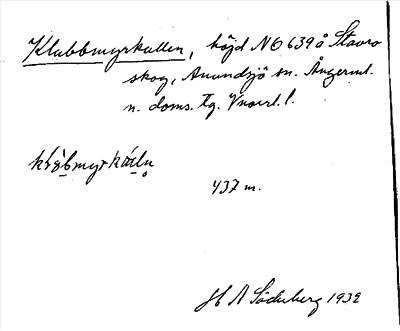 Klubbmyrkullen, höjd NO 639 å Stavro
skog, Anundsjö sn. Ångerml.
n. doms. tg. Vnorrl. l.
437 m.
H A Söderberg 1932